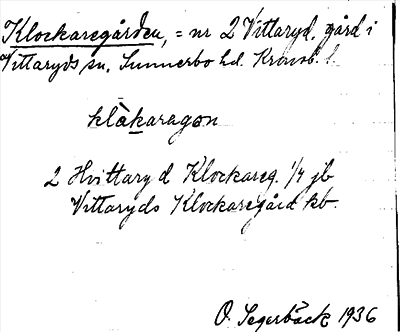 Klockaregården, = nr 2 Vittaryd, gård i
Vittaryds sn, Sunnerbo hd. Kronob. l.
klåkaragon
2 Hvittaryd Klockareg. 1/4 jb
Vittaryds Klockaregård kb.
O. Segerbäck 1936